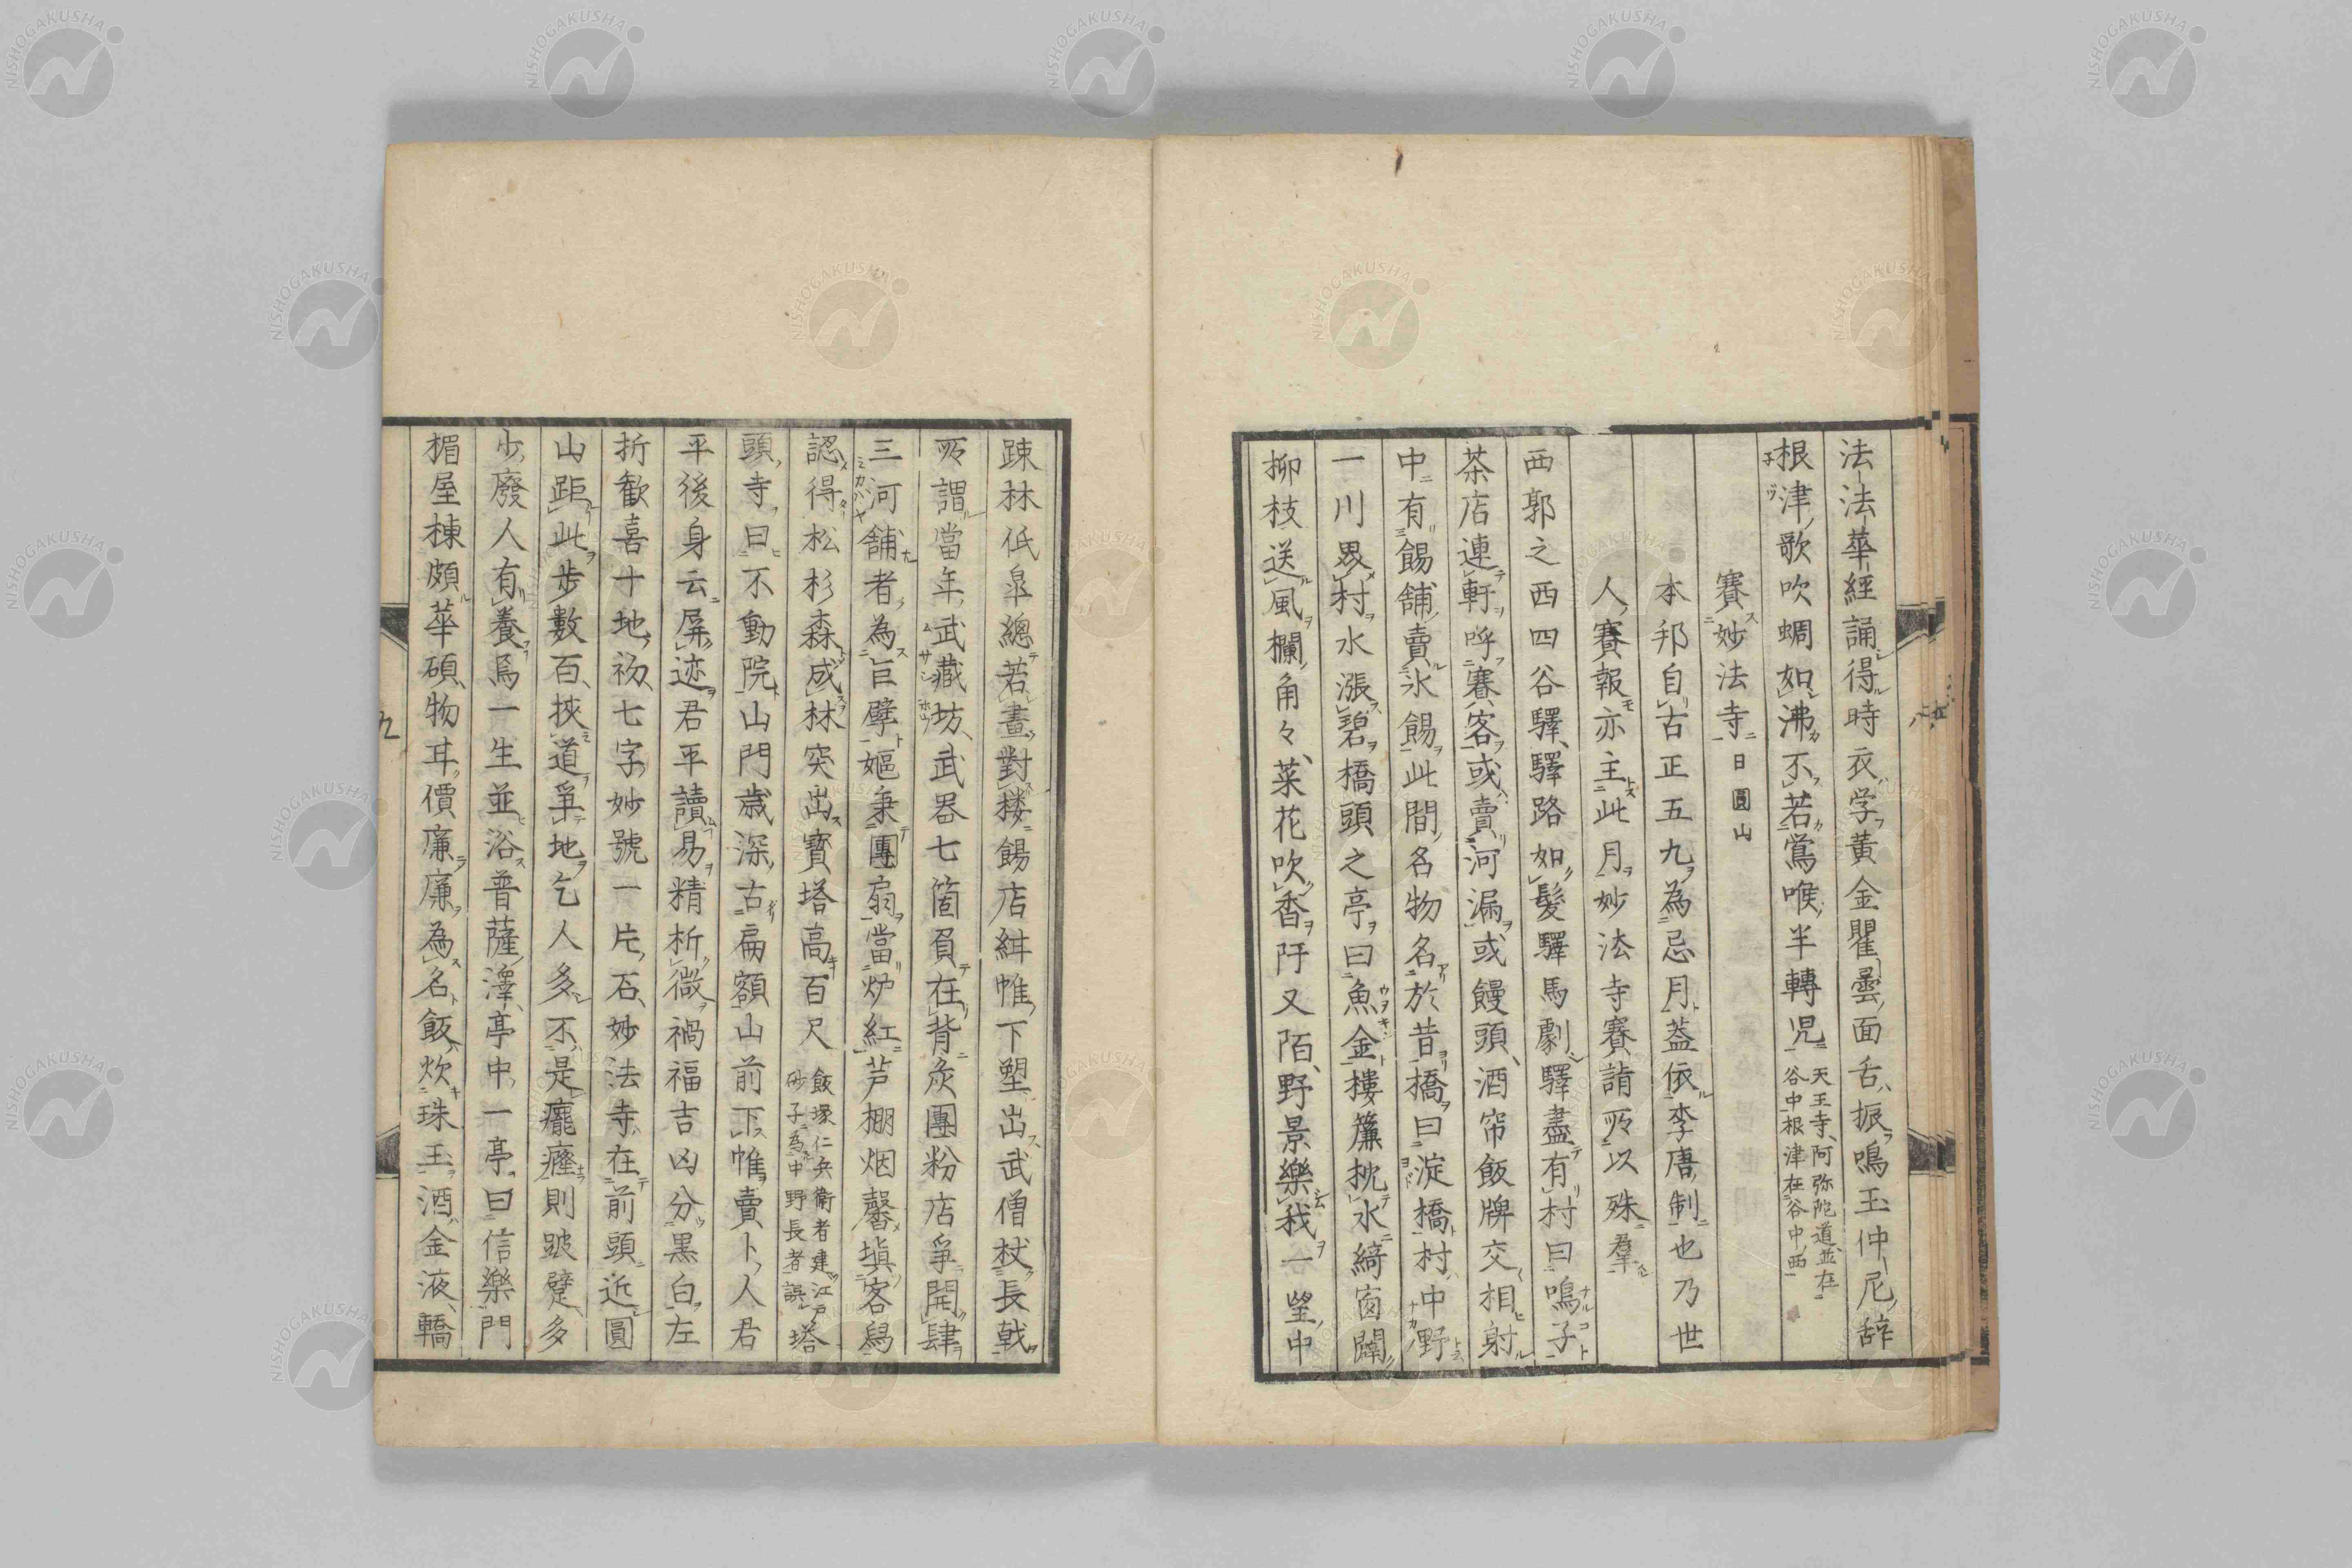 法法華經誦得時衣学黄金瞿曇面舌振鳴玉仲尼辞
根津歌吹蜩如沸不若鶯喉半轉児天王寺阿弥陀道並在谷中根津在谷中西
賽妙法寺日圓山
本邦自古正五九為忌月蓋依李唐制也乃世
人賽報亦主此月妙法寺賽詣所以殊羣
西郭之西四谷驛驛路如髮驛馬劇驛盡有村曰鳴子
茶店連軒呼賽客或賣河漏或饅頭酒帘飯牌交相射
中有餳舖賣氷餳此間名物名於昔橋曰淀橋村中野
一川界村水漲碧橋頭之亭曰魚金樓簾枕水綺窗闢
柳枝送風欄角々菜花吹香阡又陌野景樂我一望中
疎林低皐總若畫對楼餳店絣帷下塑出武僧杖長戟
所謂當年武藏坊武器七箇負在背灸團粉店爭開肆
三河舖者為巨擘嫗秉團扇當炉紅芦棚烟馨塡客舄
認得松杉森成林突出寳塔高百尺飯塚仁兵衛者建江戸砂子為中野長者誤塔
頭寺曰不動院山門歳深古扁額山前下帷賣卜人君
平後身云孱迹君平讀易精析微禍福吉凶分黒白左
折歓喜十地初七字妙號一片石妙法寺在前頭近圓
山距此步數百挾道爭地乞人多不是癃癃則跛躄多
少廢人有養為一生並浴普薩澤亭中一亭曰信樂門
楣屋棟頗華碩物丼價廉廉為名飯炊珠玉酒金液轎
九
NISHOGAKUSHA